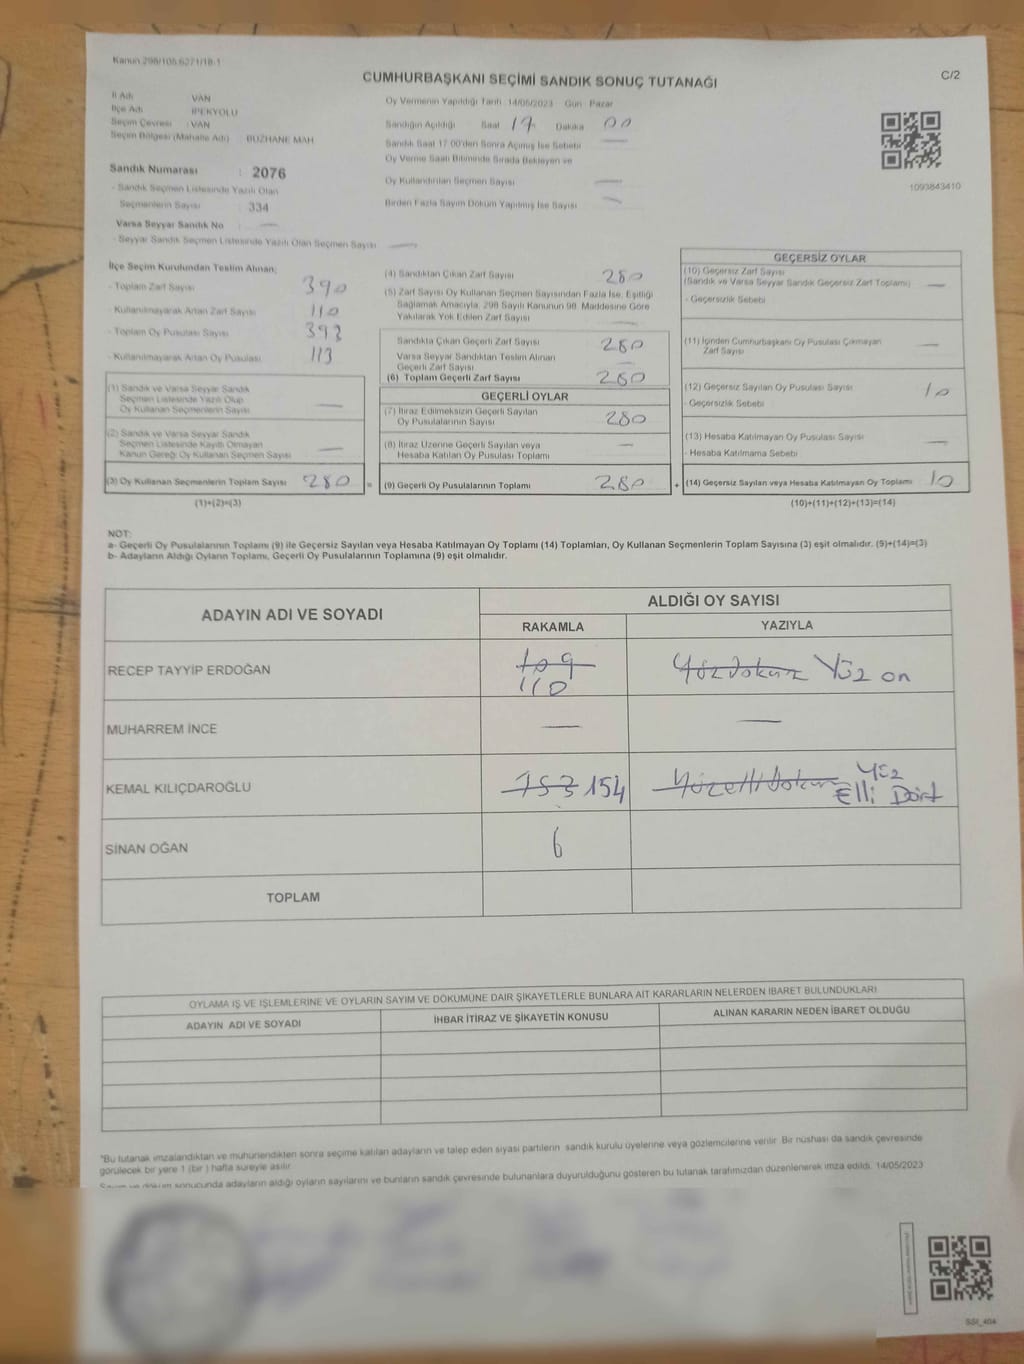 Kanun 298/105,6271/18-1
C/2
CUMHURBAŞKANI SEÇİMİ SANDIK SONUÇ TUTANAĞI
İl Adı VAN
İlçe Adı İPEKYOLU
Seçim Çevresi : VAN
Seçim Bölgesi (Mahalle Adı) : BUZHANE MAH
Oy Vermenin Yapıldığı Tarih : 14/05/2023 Gün Pazar
Sandığın Açıldığı Saat 17 Dakika 00
Sandık Saat 17:00'den Sonra Açılmış İse Sebebi —
Oy Verme Saati Bitiminde Sırada Bekleyen ve
Oy Kullandırılan Seçmen Sayısı —
Birden Fazla Sayım Döküm Yapılmış İse Sayısı —
1093843410
Sandık Numarası : 2076
- Sandık Seçmen Listesinde Yazılı Olan
Seçmenlerin Sayısı : 334
Varsa Seyyar Sandık No : —
- Seyyar Sandık Seçmen Listesinde Yazılı Olan Seçmen Sayısı —
İlçe Seçim Kurulundan Teslim Alınan;
- Toplam Zarf Sayısı 390
- Kullanılmayarak Artan Zarf Sayısı 110
- Toplam Oy Pusulası Sayısı 393
- Kullanılmayarak Artan Oy Pusulası 113
(1) Sandık ve Varsa Seyyar Sandık
Seçmen Listesinde Yazılı Olup
Oy Kullanan Seçmenlerin Sayısı —
(2) Sandık ve Varsa Seyyar Sandık
Seçmen Listesinde Kayıtlı Olmayan
Kanun Gereği Oy Kullanan Seçmen Sayısı —
(3) Oy Kullanan Seçmenlerin Toplam Sayısı 280
(1)+(2)=(3)
(4) Sandıktan Çıkan Zarf Sayısı 280
(5) Zarf Sayısı Oy Kullanan Seçmen Sayısından Fazla İse, Eşitliği
Sağlamak Amacıyla, 298 Sayılı Kanunun 98. Maddesine Göre
Yakılarak Yok Edilen Zarf Sayısı —
Sandıkta Çıkan Geçerli Zarf Sayısı 280
Varsa Seyyar Sandıktan Teslim Alınan
Geçerli Zarf Sayısı —
(6) Toplam Geçerli Zarf Sayısı 280
GEÇERLİ OYLAR
(7) İtiraz Edilmeksizin Geçerli Sayılan
Oy Pusulalarının Sayısı 280
(8) İtiraz Üzerine Geçerli Sayılan veya
Hesaba Katılan Oy Pusulası Toplamı —
= (9) Geçerli Oy Pusulalarının Toplamı 280
GEÇERSİZ OYLAR
(10) Geçersiz Zarf Sayısı
(Sandık ve Varsa Seyyar Sandık Geçersiz Zarf Toplamı) —
- Geçersizlik Sebebi
(11) İçinden Cumhurbaşkanı Oy Pusulası Çıkmayan
Zarf Sayısı —
(12) Geçersiz Sayılan Oy Pusulası Sayısı 10
- Geçersizlik Sebebi
(13) Hesaba Katılmayan Oy Pusulası Sayısı —
- Hesaba Katılmama Sebebi
+ (14) Geçersiz Sayılan veya Hesaba Katılmayan Oy Toplamı 10
(10)+(11)+(12)+(13)=(14)
NOT:
a- Geçerli Oy Pusulalarının Toplamı (9) ile Geçersiz Sayılan veya Hesaba Katılmayan Oy Toplamı (14) Toplamları, Oy Kullanan Seçmenlerin Toplam Sayısına (3) eşit olmalıdır. (9)+(14)=(3)
b- Adayların Aldığı Oyların Toplamı, Geçerli Oy Pusulalarının Toplamına (9) eşit olmalıdır.
ADAYIN ADI VE SOYADI
ALDIĞI OY SAYISI
RAKAMLA YAZIYLA
RECEP TAYYİP ERDOĞAN 109 110 Yüzdokuz Yüz on
MUHARREM İNCE — —
KEMAL KILIÇDAROĞLU 153 154 Yüz Elli Dört
SİNAN OĞAN 6
TOPLAM
OYLAMA İŞ VE İŞLEMLERİNE VE OYLARIN SAYIM VE DÖKÜMÜNE DAİR ŞİKAYETLERLE BUNLARA AİT KARARLARIN NELERDEN İBARET BULUNDUKLARI
ADAYIN ADI VE SOYADI İHBAR İTİRAZ VE ŞİKAYETİN KONUSU ALINAN KARARIN NEDEN İBARET OLDUĞU
*Bu tutanak imzalandıktan ve mühürlendikten sonra seçime katılan adayların ve talep eden siyasi partilerin sandık kurulu üyelerine veya gözlemcilerine verilir. Bir nüshası da sandık çevresinde
görülecek bir yere 1 (bir) hafta süreyle asılır.
Sayım ve döküm sonucunda adayların aldığı oyların sayılarını ve bunların sandık çevresinde bulunanlara duyurulduğunu gösteren bu tutanak tarafımızdan düzenlenerek imza edildi. 14/05/2023
SSI_404